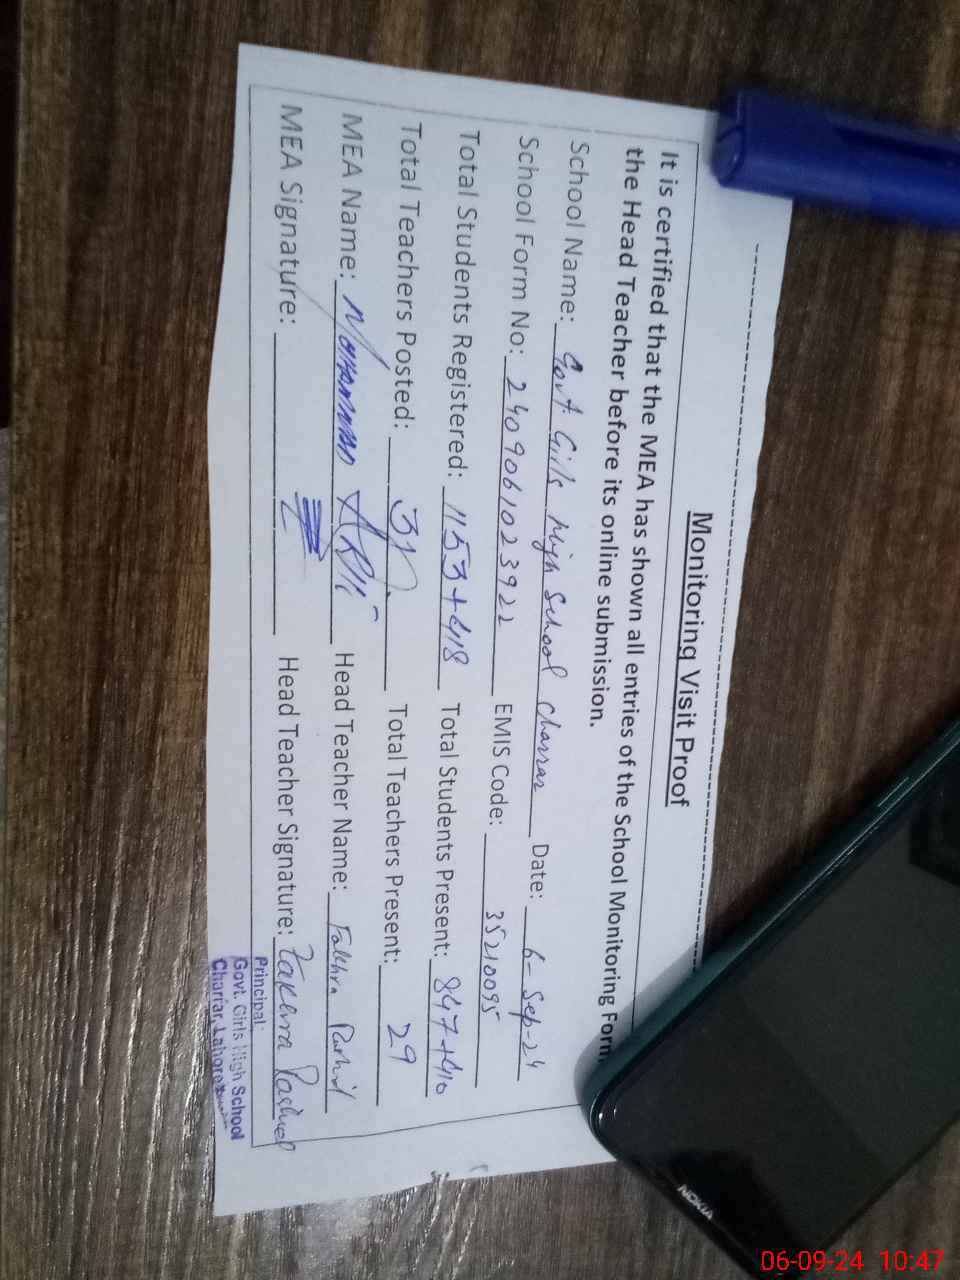 Monitoring Visit Proof
It is certified that the MEA has shown all entries of the School Monitoring Form
the Head Teacher before its online submission.
School Name: Govt. Girls High School Charrar Date: 6-Sep-24
School Form No: 2409061023922 EMIS Code: 35210095
Total Students Registered: 1153+418 Total Students Present: 847+410
Total Teachers Posted: Total Teachers Present: 29
MEA Name: Mohammad Head Teacher Name: Fakhra Rashid
MEA Signature: Head Teacher Signature: Fakhra Rashid
Principal
Govt. Girls High School
Charrar, Lahore
NOKIA
06-09-24 10:47